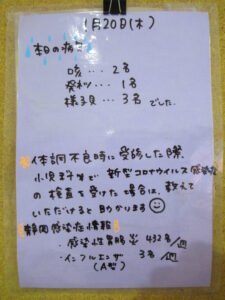 1月20日(木)
本日の病欠
咳… 2名
発熱… 1名
様子見… 3名 でした。
体調不良時に受診した際、
小児科等で新型コロナウイルス感染症
の検査を受けた場合は、教えて
いただけると助かります
静岡感染症情報
・感染性胃腸炎 432名
・インフルエンザ 3名
(A型)